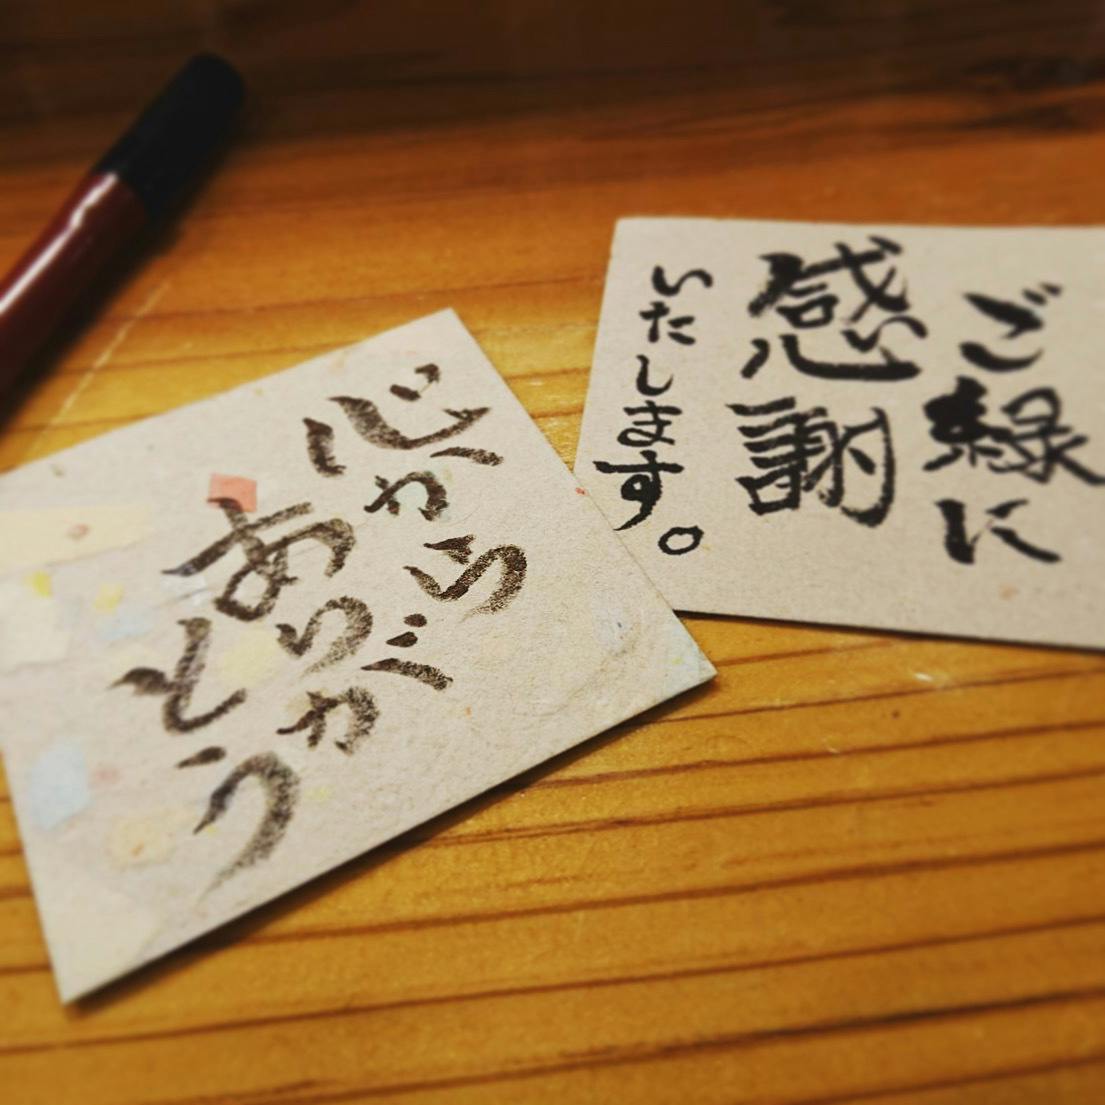 ご縁に
感謝
いたします。
心から
ありがとう